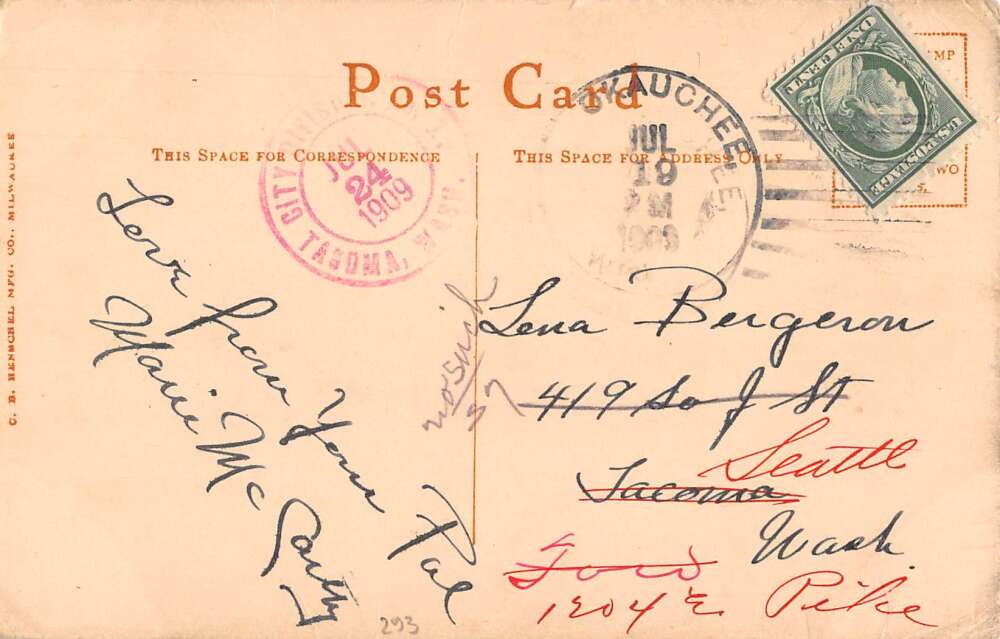 Post Card
THIS SPACE FOR CORRESPONDENCE
THIS SPACE FOR ADDRESS ONLY
C. B. HENSCHEL MFG. CO., MILWAUKEE
CITY DIVISION
JUL
24
1909
TACOMA, WASH.
OKAUCHEE LE
JUL
19
PM
1909
U.S. POSTAGE
ONE CENT
MP
WO
S.
Love from Your Pal
Marie Mc Carthy
no such
57
Lena Bergeron
419 So J St
Tacoma
Seattle
Wash
1204 E Pike
293